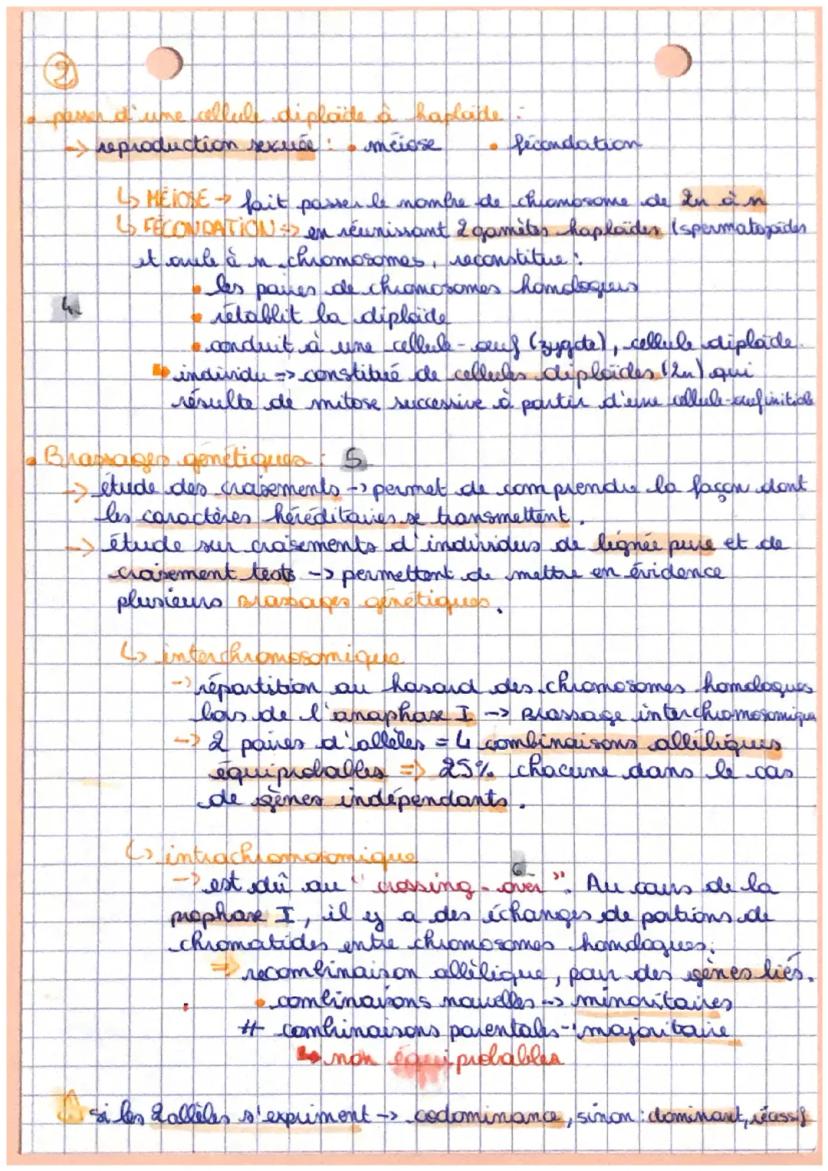 2
• passer d'une cellule diploïde à haploïde :
→ reproduction sexuée : • méiose • fécondation
↳ MÉIOSE → fait passer le nombre de chromosome de 2n à n
↳ FÉCONDATION => en réunissant 2 gamètes haploïdes (spermatozoïdes
et ovule à n chromosomes, reconstitue :
• les paires de chromosomes homologues
4.
• rétablit la diploïde
• conduit à une cellule-œuf (zygote), cellule diploïde.
↳ individu => constitué de cellules diploïdes (2n) qui
résulte de mitose successive à partir d'une cellule-œuf initiale
• Brassages génétiques : 5
→ étude des croisements → permet de comprendre la façon dont
les caractères héréditaires se transmettent.
→ étude sur croisements d'individus de lignée pure et de
croisement tests → permettent de mettre en évidence
plusieurs brassages génétiques.
↳ interchromosomique
→ répartition au hasard des chromosomes homologues
lors de l'anaphase I → Brassage interchromosomique
→ 2 paires d'allèles = 4 combinaisons alléliques
équiprobables => 25% chacune dans le cas
de gènes indépendants.
↳ intrachromosomique
6
→ est dû au "crossing-over". Au cours de la
prophase I, il y a des échanges de portions de
chromatides entre chromosomes homologues.
=> recombinaison allélique, pour des gènes liés.
• combinaisons nouvelles → minoritaires
# combinaisons parentales → majoritaire
↳ non équiprobables
⚠ si les 2 allèles s'expriment → codominance, sinon : dominant, récessif